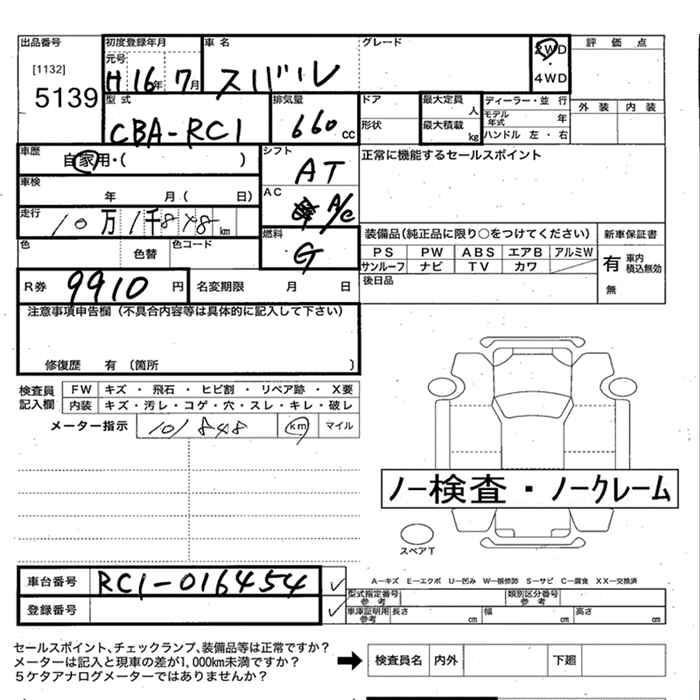 出品番号 初度登録年月 車名 グレード 2WD 4WD 評価点
[1132] 元号
5139 H16年7月 スバル
型式 排気量 ドア 最大定員 人 ディーラー・並行 外装 内装
CBA-RC1 660cc 形状 最大積載 kg モデル年式 年
ハンドル 左・右
車歴 自家用・( ) シフト AT 正常に機能するセールスポイント
車検 年 月( 日) AC A/C
走行 10万1千848km 装備品(純正品に限り○をつけてください) 新車保証書
色 色替 色コード 燃料 G PS PW ABS エアB アルミW 有 車内積込無効
サンルーフ ナビ TV カワ 無
R券 9910円 名変期限 月 日 後日品
注意事項申告欄(不具合内容等は具体的に記入して下さい)
修復歴 有(箇所 )
検査員記入欄 FW キズ・飛石・ヒビ割・リペア跡・X要
内装 キズ・汚レ・コゲ・穴・スレ・キレ・破レ
メーター指示 101848 km マイル
ノー検査・ノークレーム
スペアT
車台番号 RC1-016454 ✓ A−キズ E−エクボ U−凹み W−板修跡 S−サビ C−腐食 XX−交換済
型式指定番号 参考 類別区分番号 参考
登録番号 ✓ 車庫証明用 参考 長さ cm 幅 cm 高さ cm
セールスポイント、チェックランプ、装備品等は正常ですか?
メーターは記入と現車の差が1,000km未満ですか? 検査員名 内外 下廻
5ケタアナログメーターではありませんか?